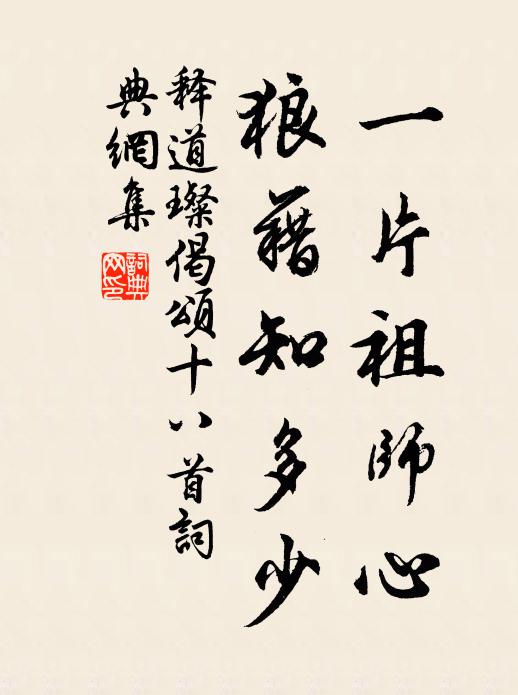 一片祖師心
狼藉知多少
释道璨偈頌十八首詞
典網集
詞典
网印